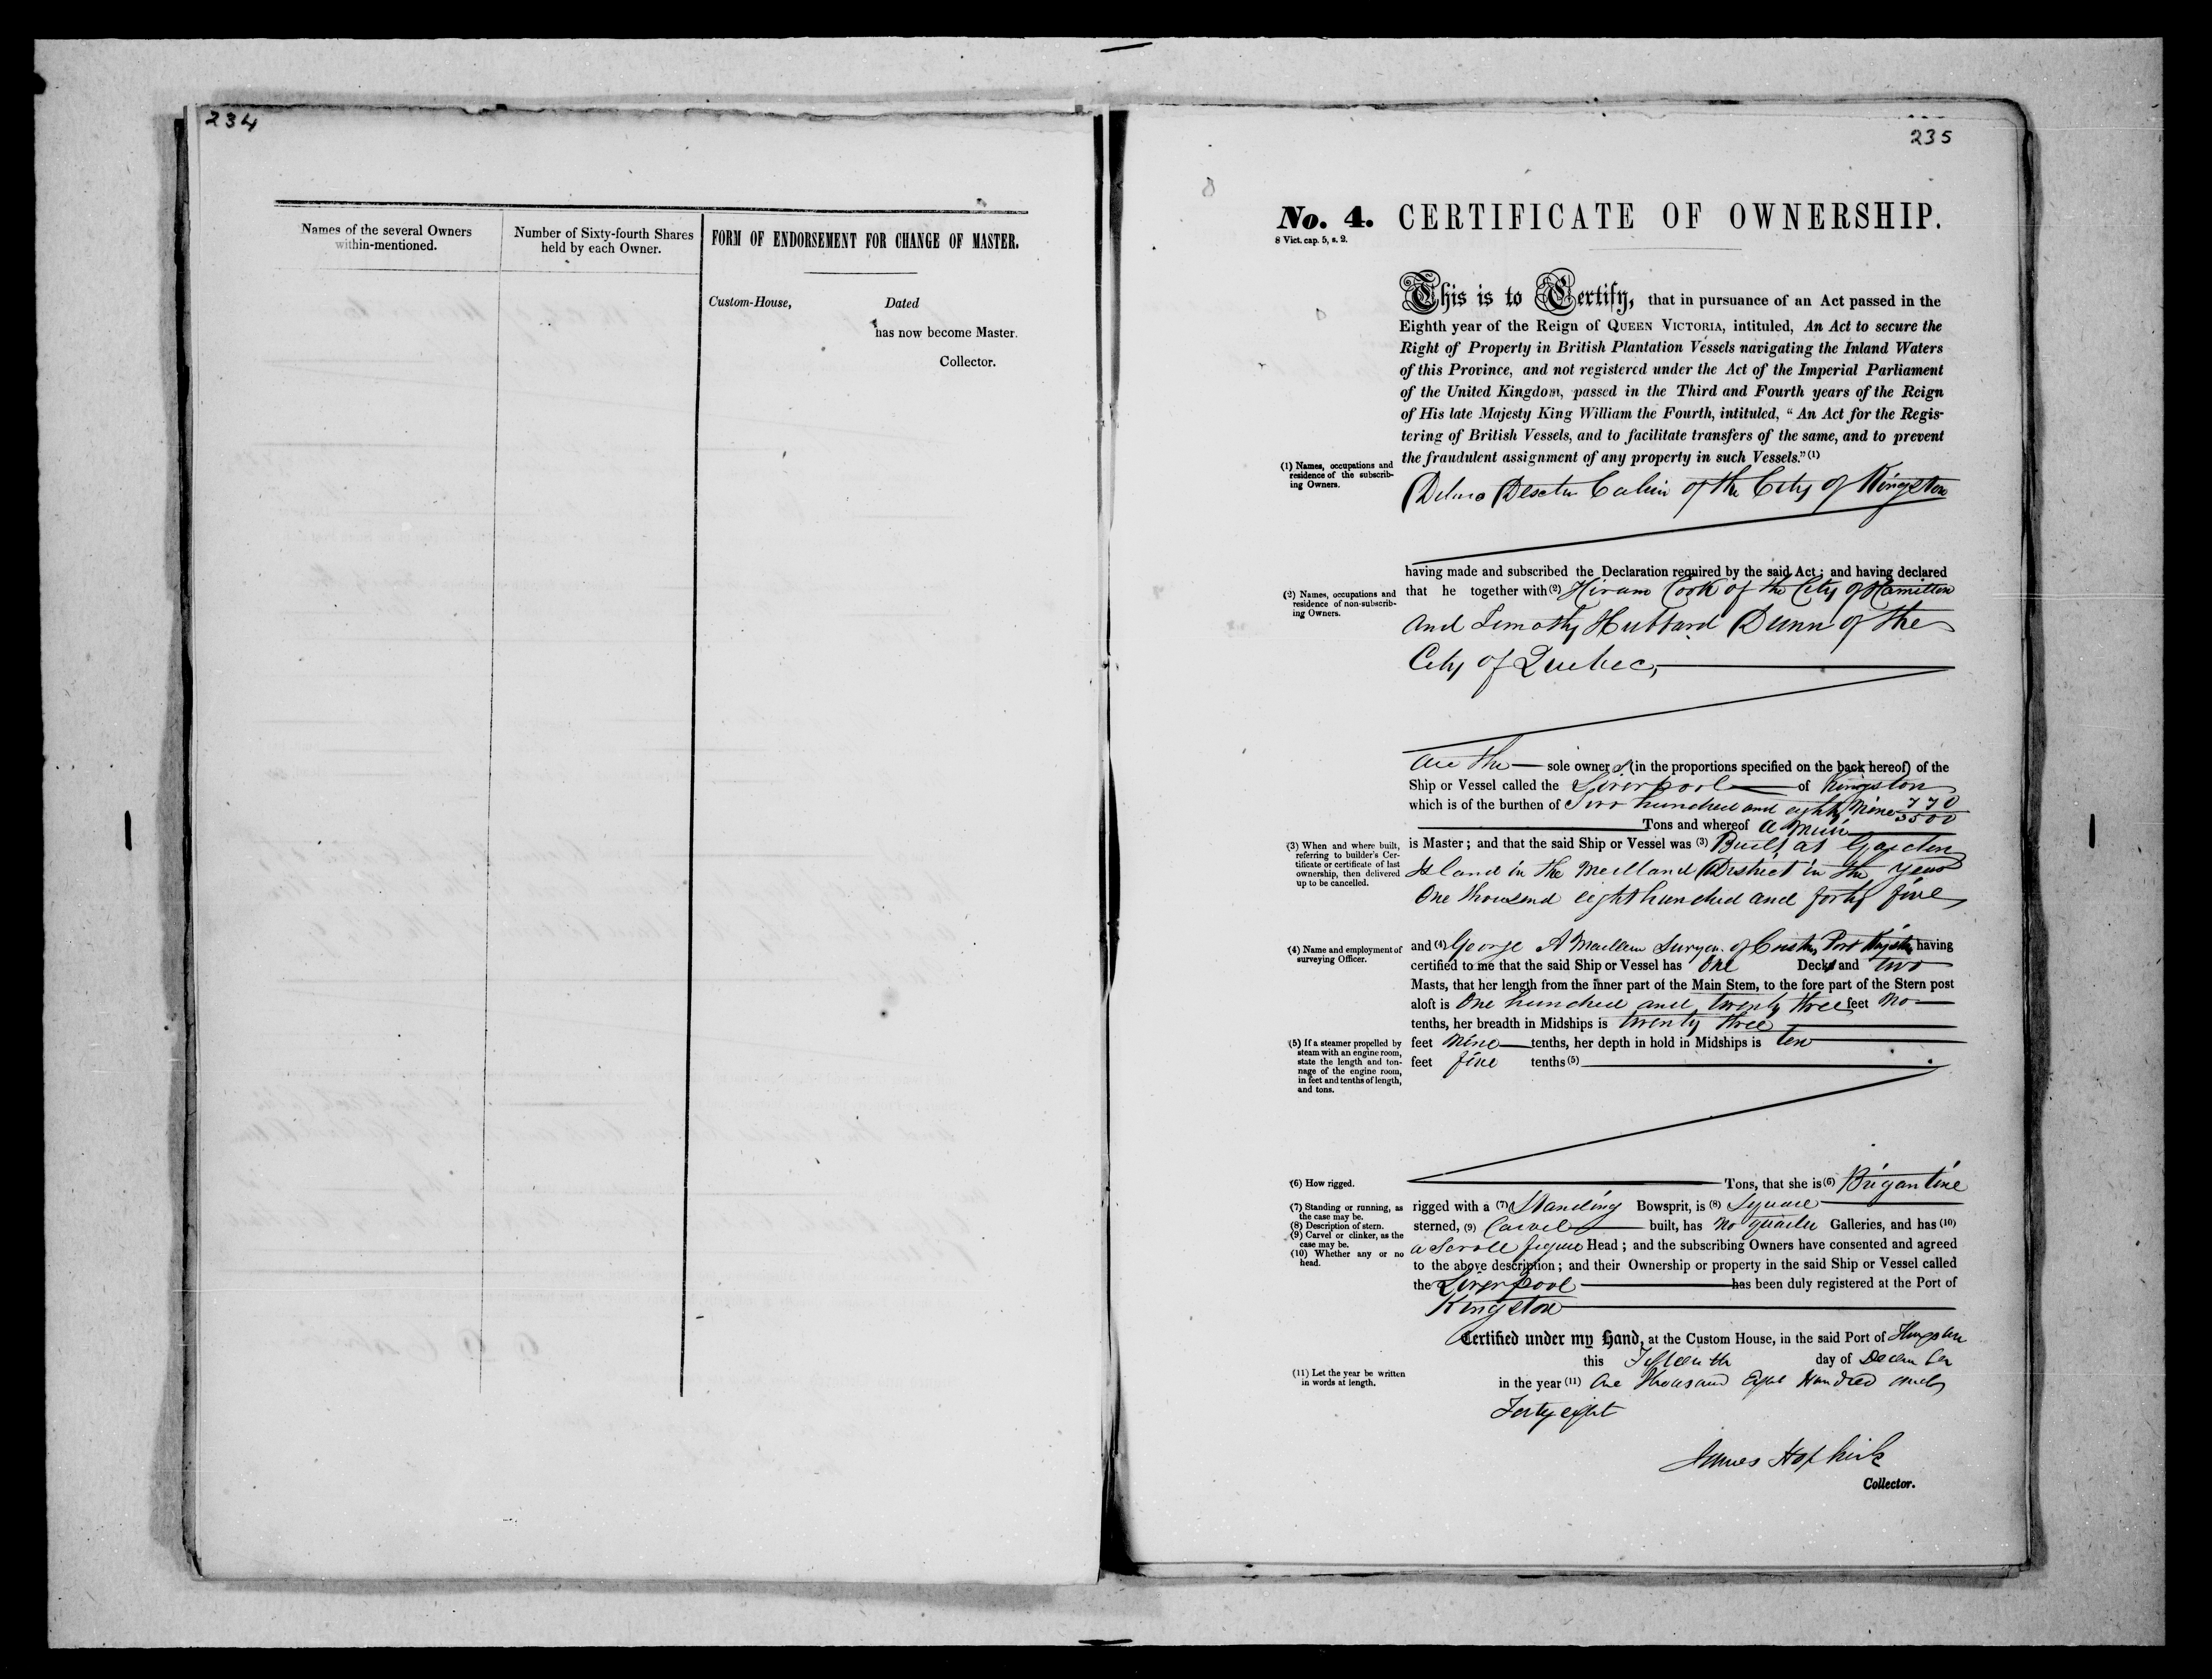 234
Names of the several Owners
within-mentioned.
Number of Sixty-fourth Shares
held by each Owner.
FORM OF ENDORSEMENT FOR CHANGE OF MASTER.
Custom-House, Dated
has now become Master.
Collector.
235
No. 4. CERTIFICATE OF OWNERSHIP.
8 Vict. cap. 5, s. 2.
This is to Certify, that in pursuance of an Act passed in the
Eighth year of the Reign of QUEEN VICTORIA, intituled, An Act to secure the
Right of Property in British Plantation Vessels navigating the Inland Waters
of this Province, and not registered under the Act of the Imperial Parliament
of the United Kingdom, passed in the Third and Fourth years of the Reign
of His late Majesty King William the Fourth, intituled, "An Act for the Regis-
tering of British Vessels, and to facilitate transfers of the same, and to prevent
the fraudulent assignment of any property in such Vessels." (1)
(1) Names, occupations and
residence of the subscrib-
ing Owners.
of the City of Kingston
having made and subscribed the Declaration required by the said Act; and having declared
that he together with (2) Hiram Cook of the City of Hamilton
(2) Names, occupations and
residence of non-subscrib-
ing Owners.
and Timothy Hubbard Dunn of the
City of Quebec,
are the sole owners (in the proportions specified on the back hereof) of the
Ship or Vessel called the Liverpool of Kingston
which is of the burthen of Two hundred and eighty Nine 770/3500
Tons and whereof
is Master; and that the said Ship or Vessel was (3) Built at Garden
(3) When and where built,
referring to builder's Cer-
tificate or certificate of last
ownership, then delivered
up to be cancelled.
Island in the Midland District in the year
One thousand eight hundred and forty five
(4) Name and employment of
surveying Officer.
and (4) George A of Port having
certified to me that the said Ship or Vessel has One Deck and two
Masts, that her length from the inner part of the Main Stem, to the fore part of the Stern post
aloft is One hundred and twenty three feet no
tenths, her breadth in Midships is twenty three
feet nine tenths, her depth in hold in Midships is ten
feet five tenths (5)
(5) If a steamer propelled by
steam with an engine room,
state the length and ton-
nage of the engine room,
in feet and tenths of length,
and tons.
(6) How rigged.
Tons, that she is (6) Brigantine
(7) Standing or running, as
the case may be.
(8) Description of stern.
(9) Carvel or clinker, as the
case may be.
(10) Whether any or no
head.
rigged with a (7) Standing Bowsprit, is (8) Square
sterned, (9) Carvel built, has no quarter Galleries, and has (10)
a Scroll figure Head; and the subscribing Owners have consented and agreed
to the above description; and their Ownership or property in the said Ship or Vessel called
the Liverpool has been duly registered at the Port of
Kingston
Certified under my Hand, at the Custom House, in the said Port of Kingston
this Fifteenth day of December
(11) Let the year be written
in words at length.
in the year (11) One Thousand Eight Hundred and
Forty eight
James Hopkirk
Collector.